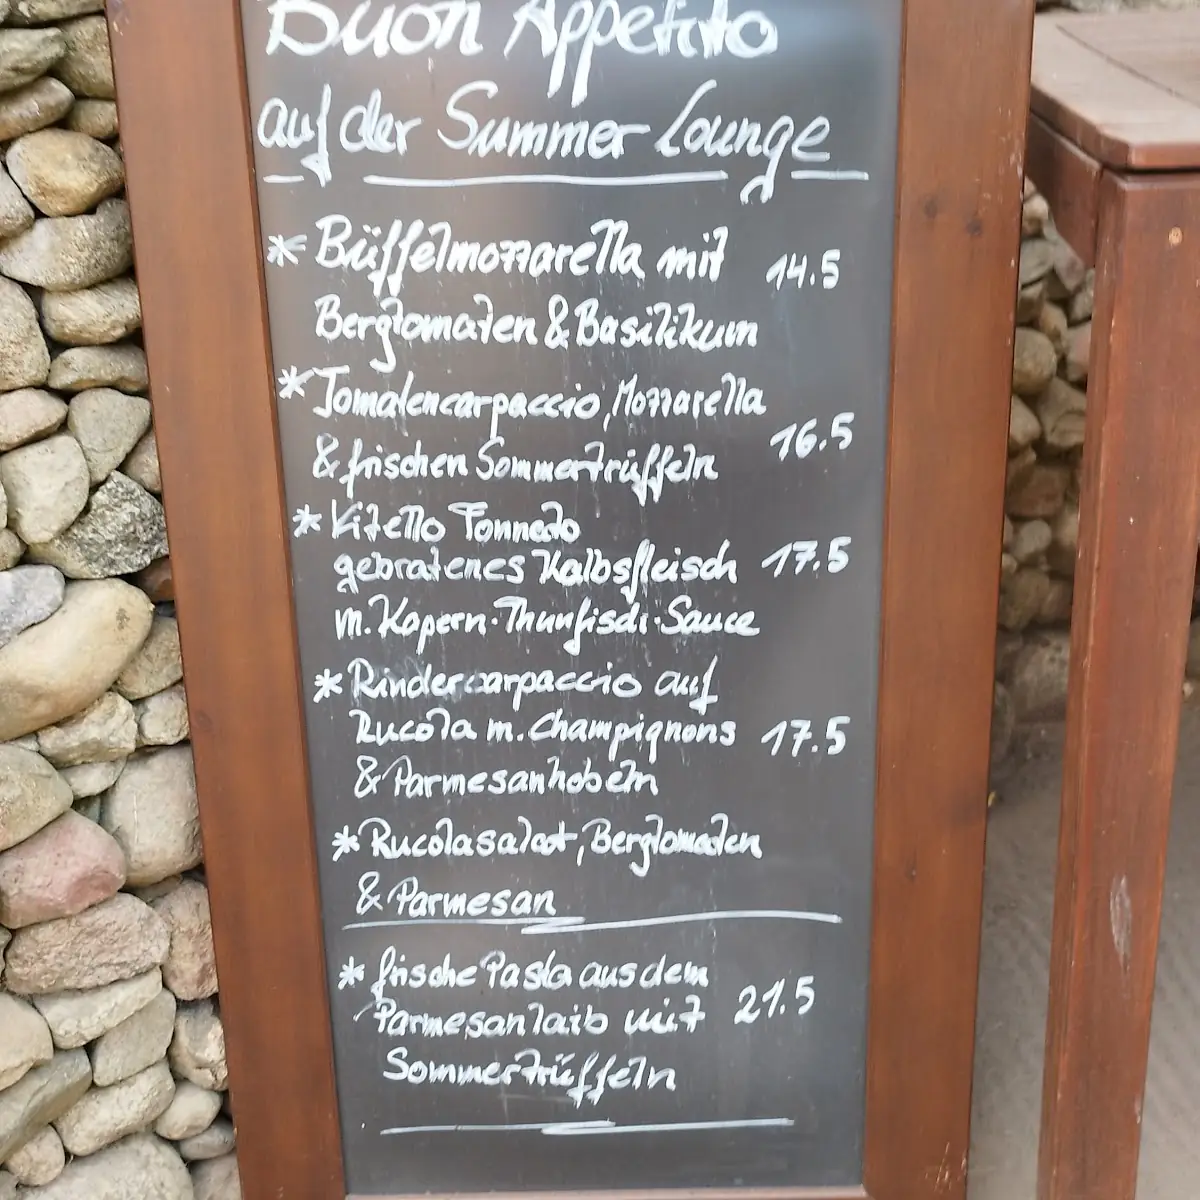 Buon Appetito
auf der Summer Lounge
* Büffelmozzarella mit 14.5
Bergtomaten & Basilikum
* Tomatencarpaccio, Mozzarella
& frischen Sommertrüffeln 16.5
* Vitello Tonnato
gebratenes Kalbsfleisch 17.5
m. Kapern-Thunfisch-Sauce
* Rindercarpaccio auf
Rucola m. Champignons 17.5
& Parmesanhobeln
* Rucolasalat, Bergtomaten
& Parmesan
* frische Pasta aus dem
Parmesanlaib mit 21.5
Sommertrüffeln